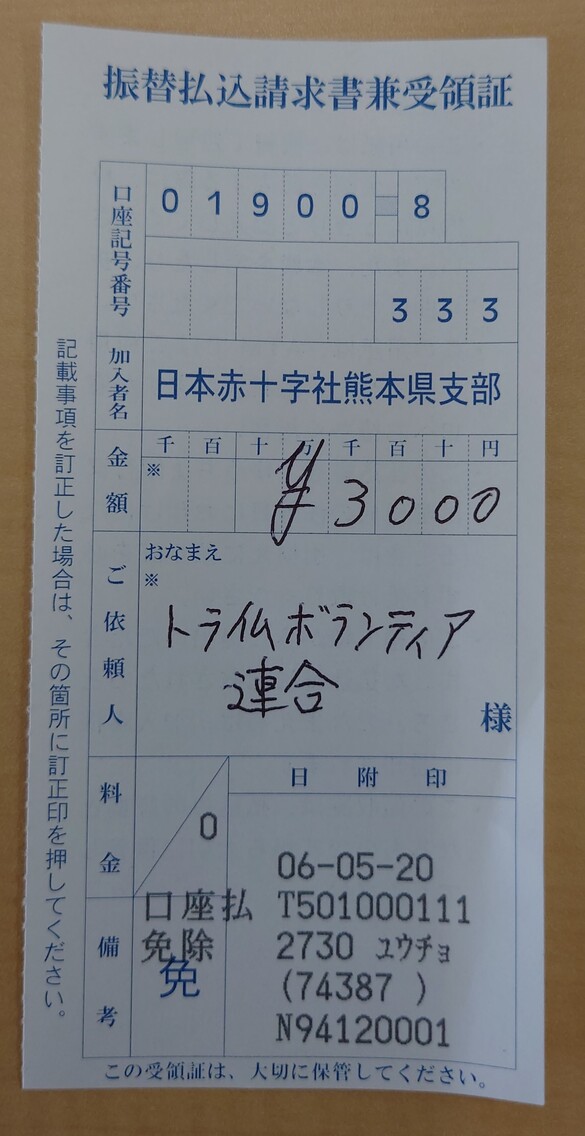 振替払込請求書兼受領証
口座記号番号
01900-8
333
加入者名
日本赤十字社熊本県支部
金額
千百十万千百十円
※
¥3000
ご依頼人
おなまえ
※
トライムボランティア
連合
様
料金
0
日附印
06-05-20
口座払 T501000111
免除 2730 ユウチョ
免 (74387 )
N94120001
備考
この受領証は、大切に保管してください。
記載事項を訂正した場合は、その箇所に訂正印を押してください。